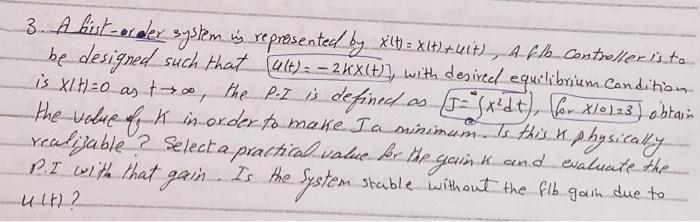 3. A first-order system is represented by ẋ(t) = x(t)+u(t), A f/b controller is to
be designed such that u(t) = -2Kx(t), with desired equilibrium condition
is x(t)=0 as t→∞, the P.I is defined as J=∫₀^∞(x²dt), for x(0)=3, obtain
the value of K in order to make J a minimum. Is this K physically
realizable? Select a practical value for the gain K and evaluate the
P.I with that gain. Is the system stable without the f/b gain due to
u(t)?